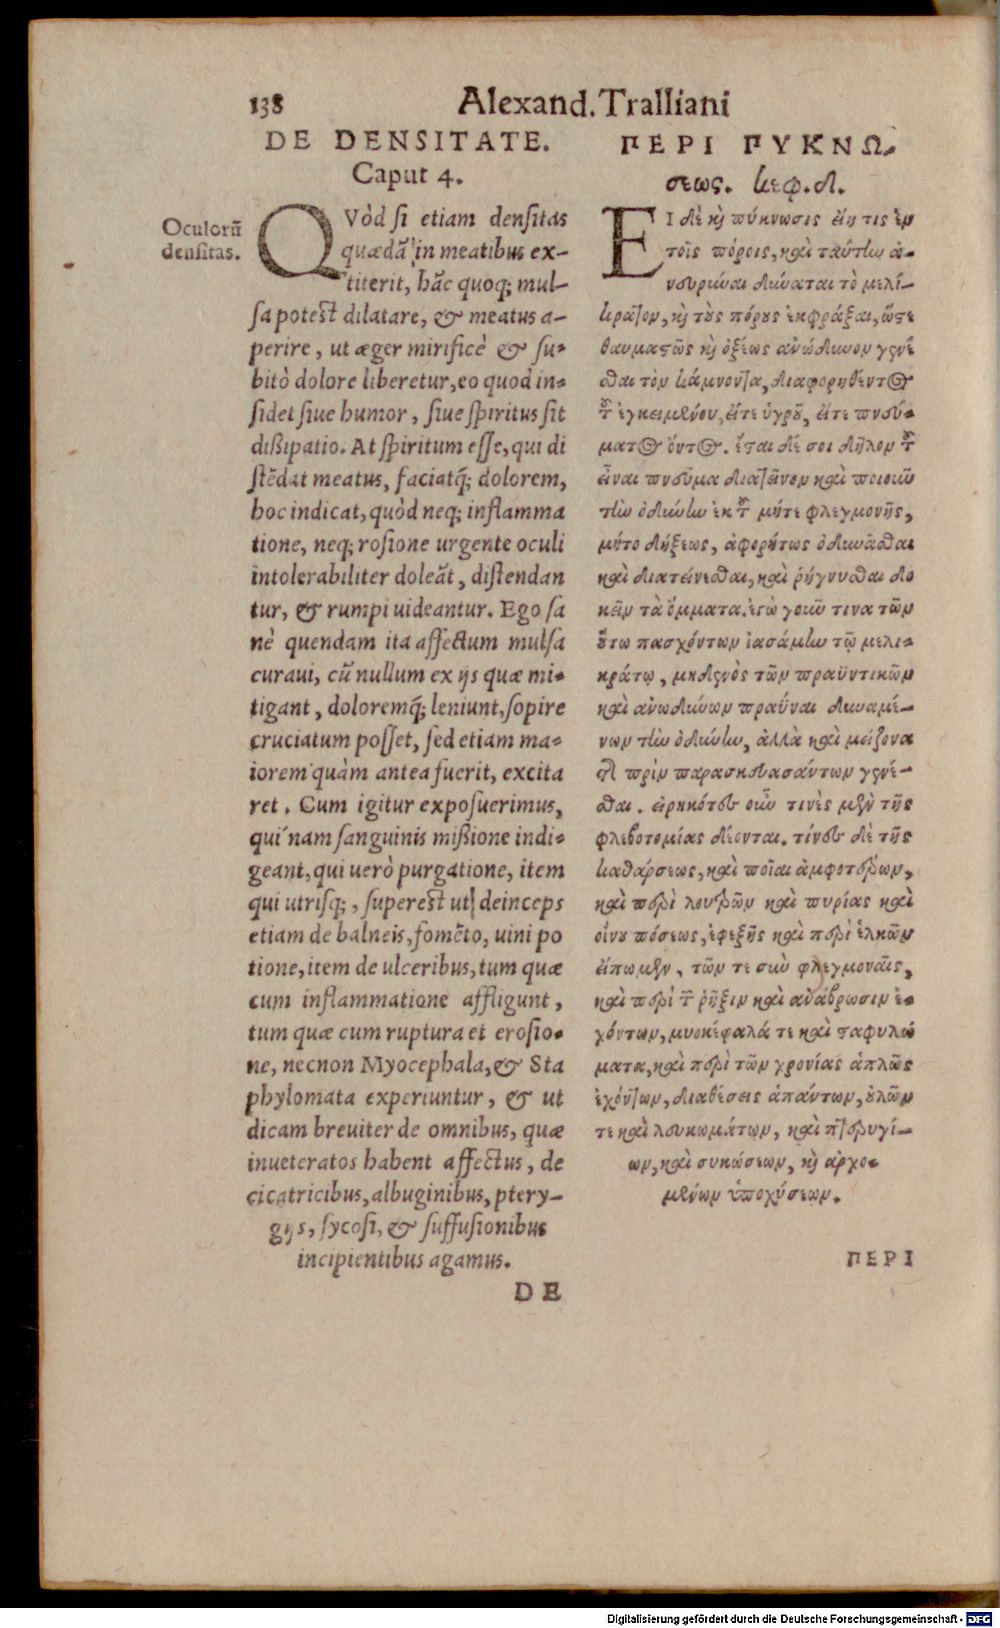 138 Alexand. Tralliani
DE DENSITATE.
Caput 4.
Oculorũ
densitas.
QVòd si etiam densitas
quædã in meatibus ex-
titerit, hãc quoq; mul-
sa potest dilatare, & meatus a-
perire, ut æger mirificè & su-
bitò dolore liberetur, eo quod in-
sidet siue humor, siue spiritus sit
dißipatio. At spiritum esse, qui di
stẽdat meatus, faciatq́; dolorem,
hoc indicat, quòd neq; inflamma
tione, neq; rosione urgente oculi
intolerabiliter doleãt, distendan
tur, & rumpi uideantur. Ego sa
nè quendam ita affectum mulsa
curaui, cũ nullum ex ijs quæ mi-
tigant, doloremq́; leniunt, sopire
cruciatum posset, sed etiam ma-
iorem quàm antea fuerit, excita
ret. Cum igitur exposuerimus,
qui nam sanguinis mißione indi-
geant, qui uerò purgatione, item
qui utrisq;, superest ut deinceps
etiam de balneis, fomẽto, uini po
tione, item de ulceribus, tum quæ
cum inflammatione affligunt,
tum quæ cum ruptura et erosio-
ne, necnon Myocephala, & Sta
phylomata experiuntur, & ut
dicam breuiter de omnibus, quæ
inueteratos habent affectus, de
cicatricibus, albuginibus, ptery-
gijs, sycosi, & suffusionibus
incipientibus agamus.
DE
ΠΕΡΙ ΠΥΚΝΩ-
σεως. κεφ. δ.
ΕΙ δὲ κὴ πύκνωσις εἴη τις ἐν
τοῖς πόροις, καὶ ταύτην ἀ-
νευρῦναι δύναται τὸ μελί-
κρατον, κὴ τοὺς πόρους ἐκφράξαι, ὥστε
θαυμαστῶς κὴ ὀξέως ἀνώδυνον γενέ
σθαι τὸν κάμνοντα, διαφορηθέντος
τοῦ ἐγκειμένου, εἴτε ὑγροῦ, εἴτε πνεύ-
ματος ὄντος. ἔσται δέ σοι δῆλον τοῦ
εἶναι πνεῦμα διατεῖνον καὶ ποιοῦν
τὴν ὀδύνην ἐκ τοῦ μήτε φλεγμονῆς,
μήτε δήξεως, ἀφορήτως ὀδυνᾶσθαι
καὶ διατείνεσθαι, καὶ ῥήγνυσθαι δο
κεῖν τὰ ὄμματα. ἐγὼ γοῦν τινα τῶν
οὕτω πασχόντων ἰασάμην τῷ μελι-
κράτῳ, μηδενὸς τῶν πραϋντικῶν
καὶ ἀνωδύνων πραΰναι δυναμέ-
νων τὴν ὀδύνην, ἀλλὰ καὶ μείζονα
ἢ πρὶν παρασκευασάντων γενέ-
σθαι. εἰρηκότες οὖν τινὲς μὲν τῆς
φλεβοτομίας δέονται. τίνες δὲ τῆς
καθάρσεως, καὶ ποῖαι ἀμφοτέρων,
καὶ περὶ λουτρῶν καὶ πυρίας καὶ
οἴνου πόσεως, ἐφεξῆς καὶ περὶ ἑλκῶν
εἴπωμεν, τῶν τε σὺν φλεγμοναῖς,
καὶ περὶ τὴν ῥῆξιν καὶ ἀνάβρωσιν ἐ-
χόντων, μυοκέφαλά τε καὶ σταφυλώ
ματα, καὶ περὶ τῶν χρονίας ἁπλῶς
ἐχόντων, διαθέσεις ἁπάντων, οὐλῶν
τε καὶ λευκωμάτων, καὶ πτερυγί-
ων, καὶ συκώσεων, κὴ ἀρχο-
μένων ὑποχύσεων.
ΠΕΡΙ
Digitalisierung gefördert durch die Deutsche Forschungsgemeinschaft - DFG